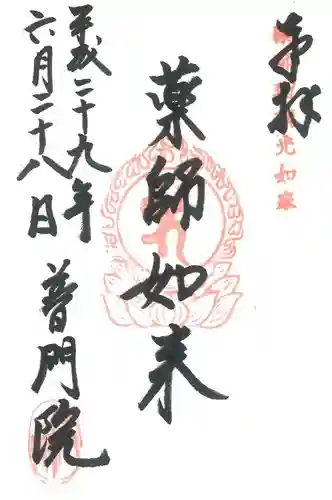 奉拝
薬師如来
平成二十九年
六月二十八日
普門院
光如来